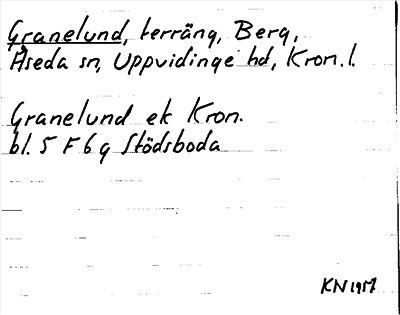 Granelund, terräng, Berg,
Åseda sn, Uppvidinge hd, Kron. l.
Granelund ek Kron.
bl. 5 F 6 g Stödsboda
KN 1957